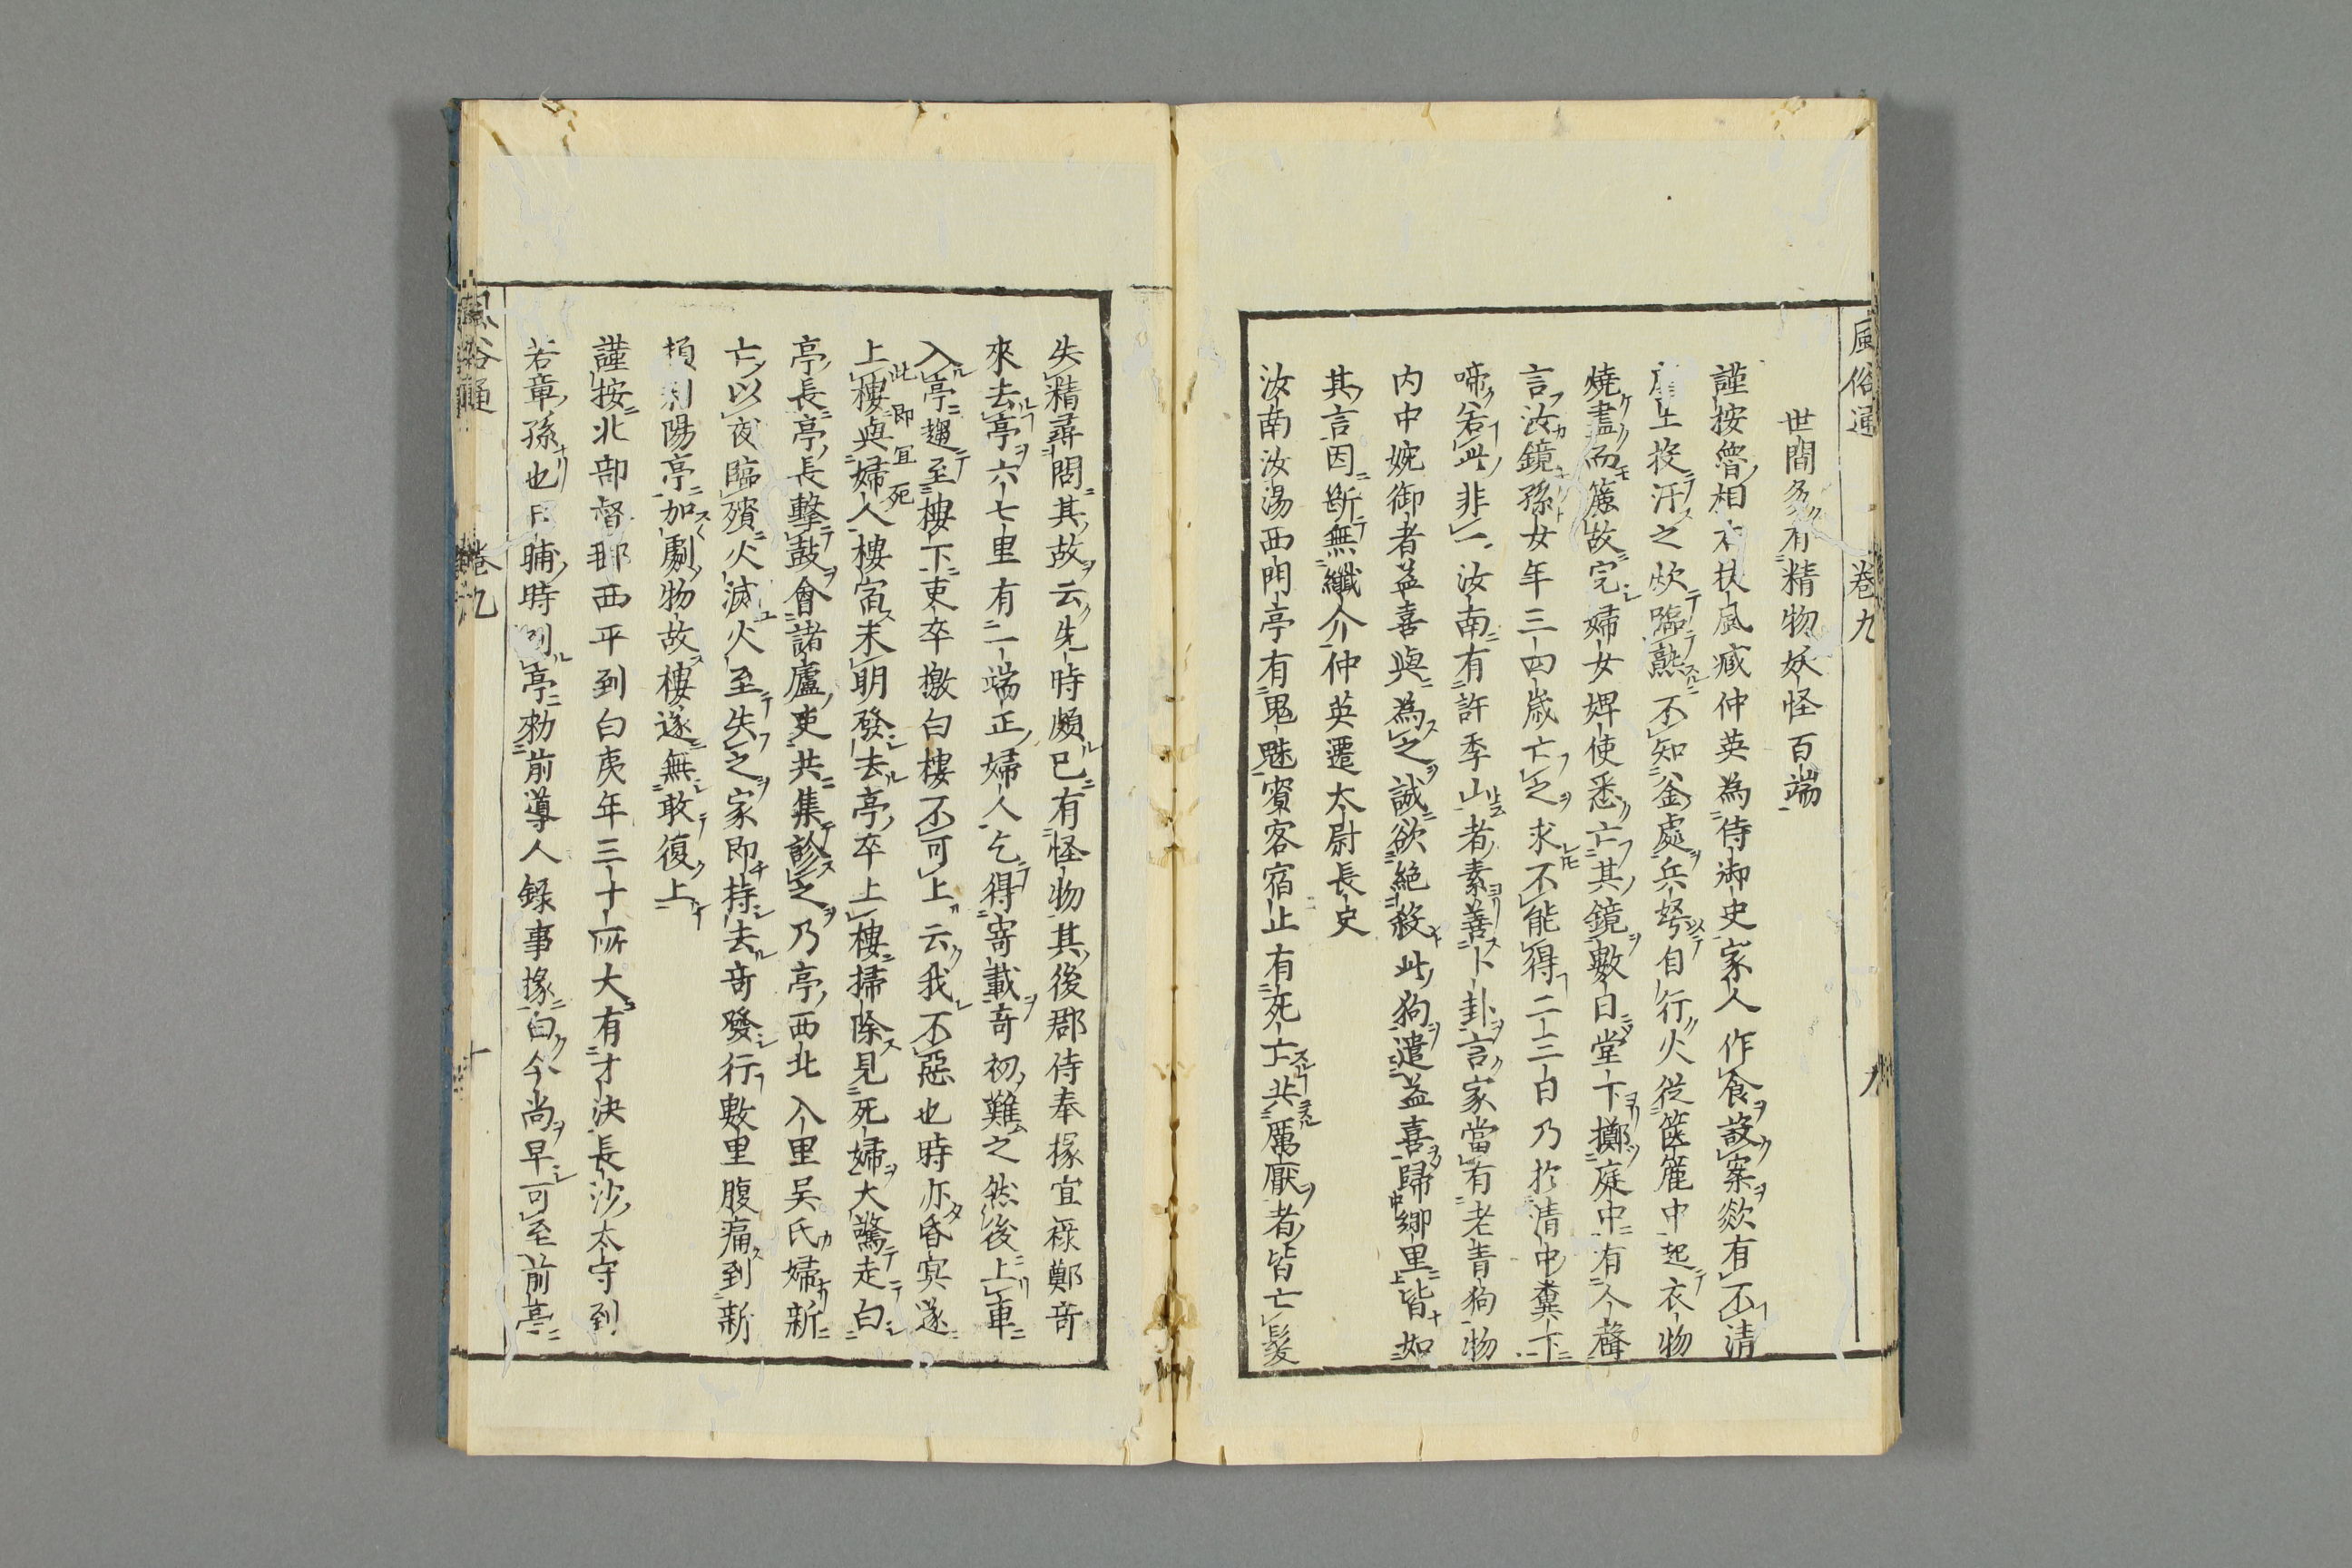 風俗通 卷九 九
世間多有精物妖怪百端
謹按魯相右扶風臧仲英為侍御史家人作食設案欻有不清
塵土投汙之炊臨熟不知釜處兵弩自行火從篋簏中起衣物
燒盡而簏故完婦女婢使悉亡其鏡數日堂下擲庭中有人聲
言汝鏡孫女年三四歲亡之求不能得二三日乃於清中糞下
啼若此非一汝南有許季山者素善卜卦言家當有老青狗物
内中婉御者益喜與為之誠欲絕殺此狗遣益喜歸鄉里皆如
其言因斷無纖介仲英遷太尉長史
汝南汝陽西門亭有鬼魅賓客宿止有死亡共厲厭者皆亡髮
失精尋問其故云先時頗已有怪物其後郡侍奉掾宜祿鄭竒
來去亭六七里有一端正婦人乞得寄載竒初難之然後上車
入亭趨至樓下吏卒檄白樓不可上云我不惡也時亦昏㝠遂
上樓與婦人樓宿未明發去亭卒上樓掃除見死婦大驚走白
此即宜死
亭長亭長擊鼓會諸廬吏共集診之乃亭西北八里吳氏婦新
亡以夜臨殯火滅火至失之家即持去竒發行數里腹痛到新
頓利陽亭加劇物故樓遂無敢復上
謹按北部督郵西平到白夷年三十所大有才決長沙太守到
若章孫也日晡時到亭勑前導人錄事掾白今尚早可至前亭
風俗通 卷九 十